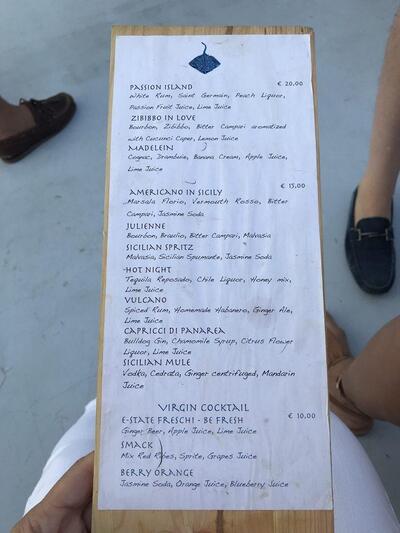 PASSION ISLAND € 20,00
White Rum, Saint Germain, Peach Liquor,
Passion Fruit Juice, Lime Juice
ZIBIBBO IN LOVE
Bourbon, Zibibbo, Bitter Campari aromatized
with Cucunci Caper, Lemon Juice
MADELEIN
Cognac, Drambuie, Banana Cream, Apple Juice,
Lime Juice
AMERICANO IN SICILY € 15,00
Marsala Florio, Vermouth Rosso, Bitter
Campari, Jasmine Soda
JULIENNE
Bourbon, Braulio, Bitter Campari, Malvasia
SICILIAN SPRITZ
Malvasia, Sicilian Spumante, Jasmine Soda
HOT NIGHT
Tequila Reposado, Chile Liquor, Honey mix,
Lime Juice
VULCANO
Spiced Rum, Homemade Habanero, Ginger Ale,
Lime Juice
CAPRICCI DI PANAREA
Bulldog Gin, Chamomile Syrup, Citrus Flower
Liquor, Lime Juice
SICILIAN MULE
Vodka, Cedrata, Ginger centrifuged, Mandarin
Juice
VIRGIN COCKTAIL
E-STATE FRESCHI - BE FRESH € 10,00
Ginger Beer, Apple Juice, Lime Juice
SMACK
Mix Red Ribes, Sprite, Grapes Juice
BERRY ORANGE
Jasmine Soda, Orange Juice, Blueberry Juice